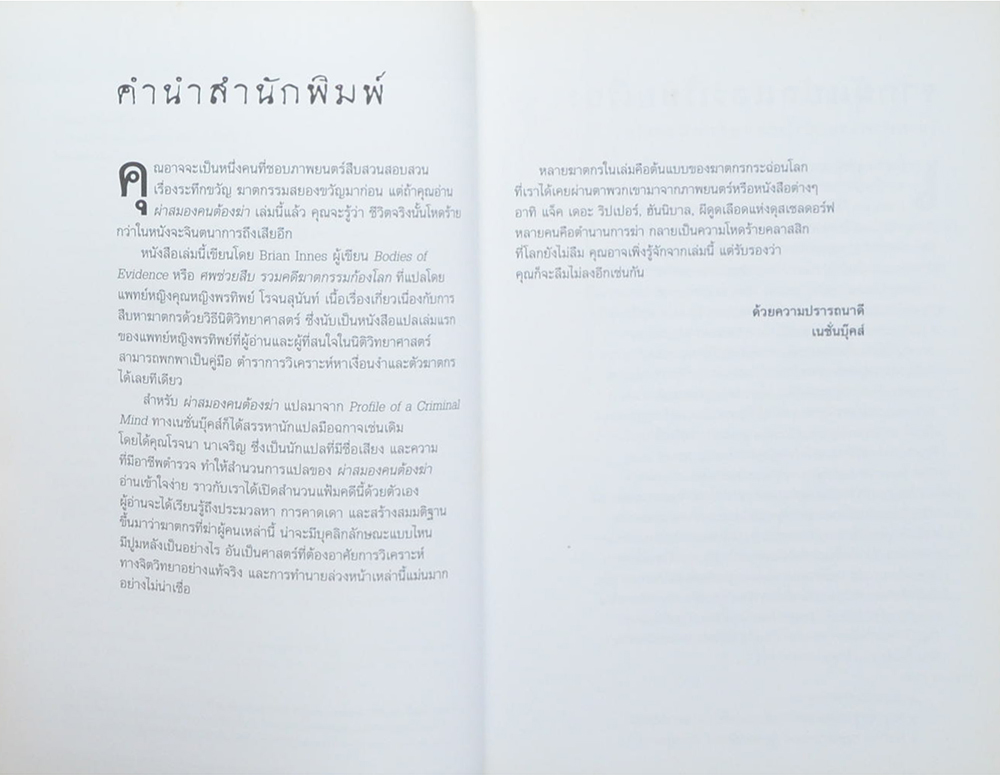 คำนำสำนักพิมพ์
คุณอาจจะเป็นหนึ่งคนที่ชอบภาพยนตร์สืบสวนสอบสวน
เรื่องระทึกขวัญ ฆาตกรรมสยองขวัญมาก่อน แต่ถ้าคุณอ่าน
ผ่าสมองคนต้องฆ่า เล่มนี้แล้ว คุณจะรู้ว่า ชีวิตจริงนั้นโหดร้าย
กว่าในหนังจะจินตนาการถึงเสียอีก
หนังสือเล่มนี้เขียนโดย Brian Innes ผู้เขียน Bodies of
Evidence หรือ ศพช่วยสืบ รวมคดีฆาตกรรมก้องโลก ที่แปลโดย
แพทย์หญิงคุณหญิงพรทิพย์ โรจนสุนันท์ เนื้อเรื่องเกี่ยวเนื่องกับการ
สืบหาฆาตกรด้วยวิธีนิติวิทยาศาสตร์ ซึ่งนับเป็นหนังสือแปลเล่มแรก
ของแพทย์หญิงพรทิพย์ที่ผู้อ่านและผู้ที่สนใจในนิติวิทยาศาสตร์
สามารถพกพาเป็นคู่มือ ตำราการวิเคราะห์หาเงื่อนงำและตัวฆาตกร
ได้เลยทีเดียว
สำหรับ ผ่าสมองคนต้องฆ่า แปลมาจาก Profile of a Criminal
Mind ทางเนชั่นบุ๊คส์ก็ได้สรรหานักแปลมือฉกาจเช่นเดิม
โดยได้คุณโรจนา นาเจริญ ซึ่งเป็นนักแปลที่มีชื่อเสียง และความ
ที่มีอาชีพตำรวจ ทำให้สำนวนการแปลของ ผ่าสมองคนต้องฆ่า
อ่านเข้าใจง่าย ราวกับเราได้เปิดสำนวนแฟ้มคดีนี้ด้วยตัวเอง
ผู้อ่านจะได้เรียนรู้ถึงประมวลหา การคาดเดา และสร้างสมมติฐาน
ขึ้นมาว่าฆาตกรที่ฆ่าผู้คนเหล่านี้ น่าจะมีบุคลิกลักษณะแบบไหน
มีปูมหลังเป็นอย่างไร อันเป็นศาสตร์ที่ต้องอาศัยการวิเคราะห์
ทางจิตวิทยาอย่างแท้จริง และการทำนายล่วงหน้าเหล่านี้แม่นมาก
อย่างไม่น่าเชื่อ
หลายฆาตกรในเล่มคือต้นแบบของฆาตกรกระฉ่อนโลก
ที่เราได้เคยผ่านตาพวกเขามาจากภาพยนตร์หรือหนังสือต่างๆ
อาทิ แจ็ค เดอะ ริปเปอร์, ฮันนิบาล, ผีดูดเลือดแห่งดุสเซลดอร์ฟ
หลายคนคือตำนานการฆ่า กลายเป็นความโหดร้ายคลาสสิก
ที่โลกยังไม่ลืม คุณอาจเพิ่งรู้จักจากเล่มนี้ แต่รับรองว่า
คุณก็จะลืมไม่ลงอีกเช่นกัน
ด้วยความปรารถนาดี
เนชั่นบุ๊คส์